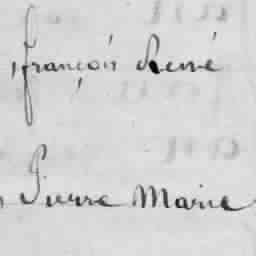 françois René
Pierre Marie